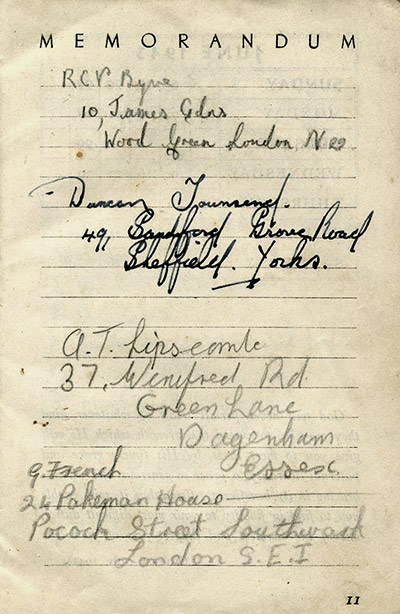 MEMORANDUM
R.C.V. Byne
10, James Gdns
Wood Green London N 22
Duncan Townsend.
49, Sandford Grove Road
Sheffield. Yorks.
A.T. Lipscombe
37, Winifred Rd
Green Lane
Dagenham
Essex
G. French
24 Pakeman House
Pocock Street Southwark
London S.E.I
11